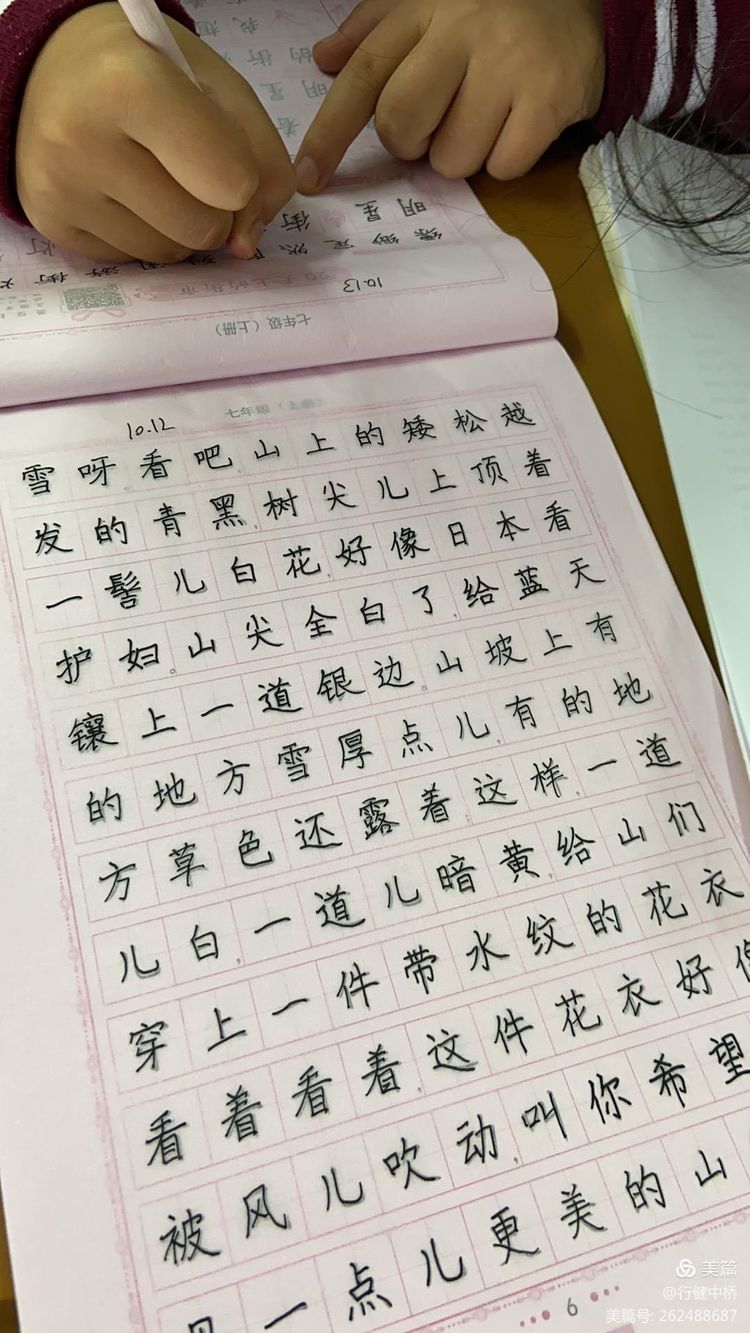 明星
10.13
七年级（上册）
10.12
七年级（上册）
雪呀。看吧,山上的矮松越
发的青黑,树尖儿上顶着
一髻儿白花,好像日本看
护妇。山尖全白了,给蓝天
镶上一道银边。山坡上有
的地方雪厚点儿,有的地
方草色还露着;这样,一道
儿白,一道儿暗黄,给山们
穿上一件带水纹的花衣
看着看着,这件花衣好像
被风儿吹动,叫你希望
一点儿更美的山
6
美篇
@行健中桥
美篇号: 262488687